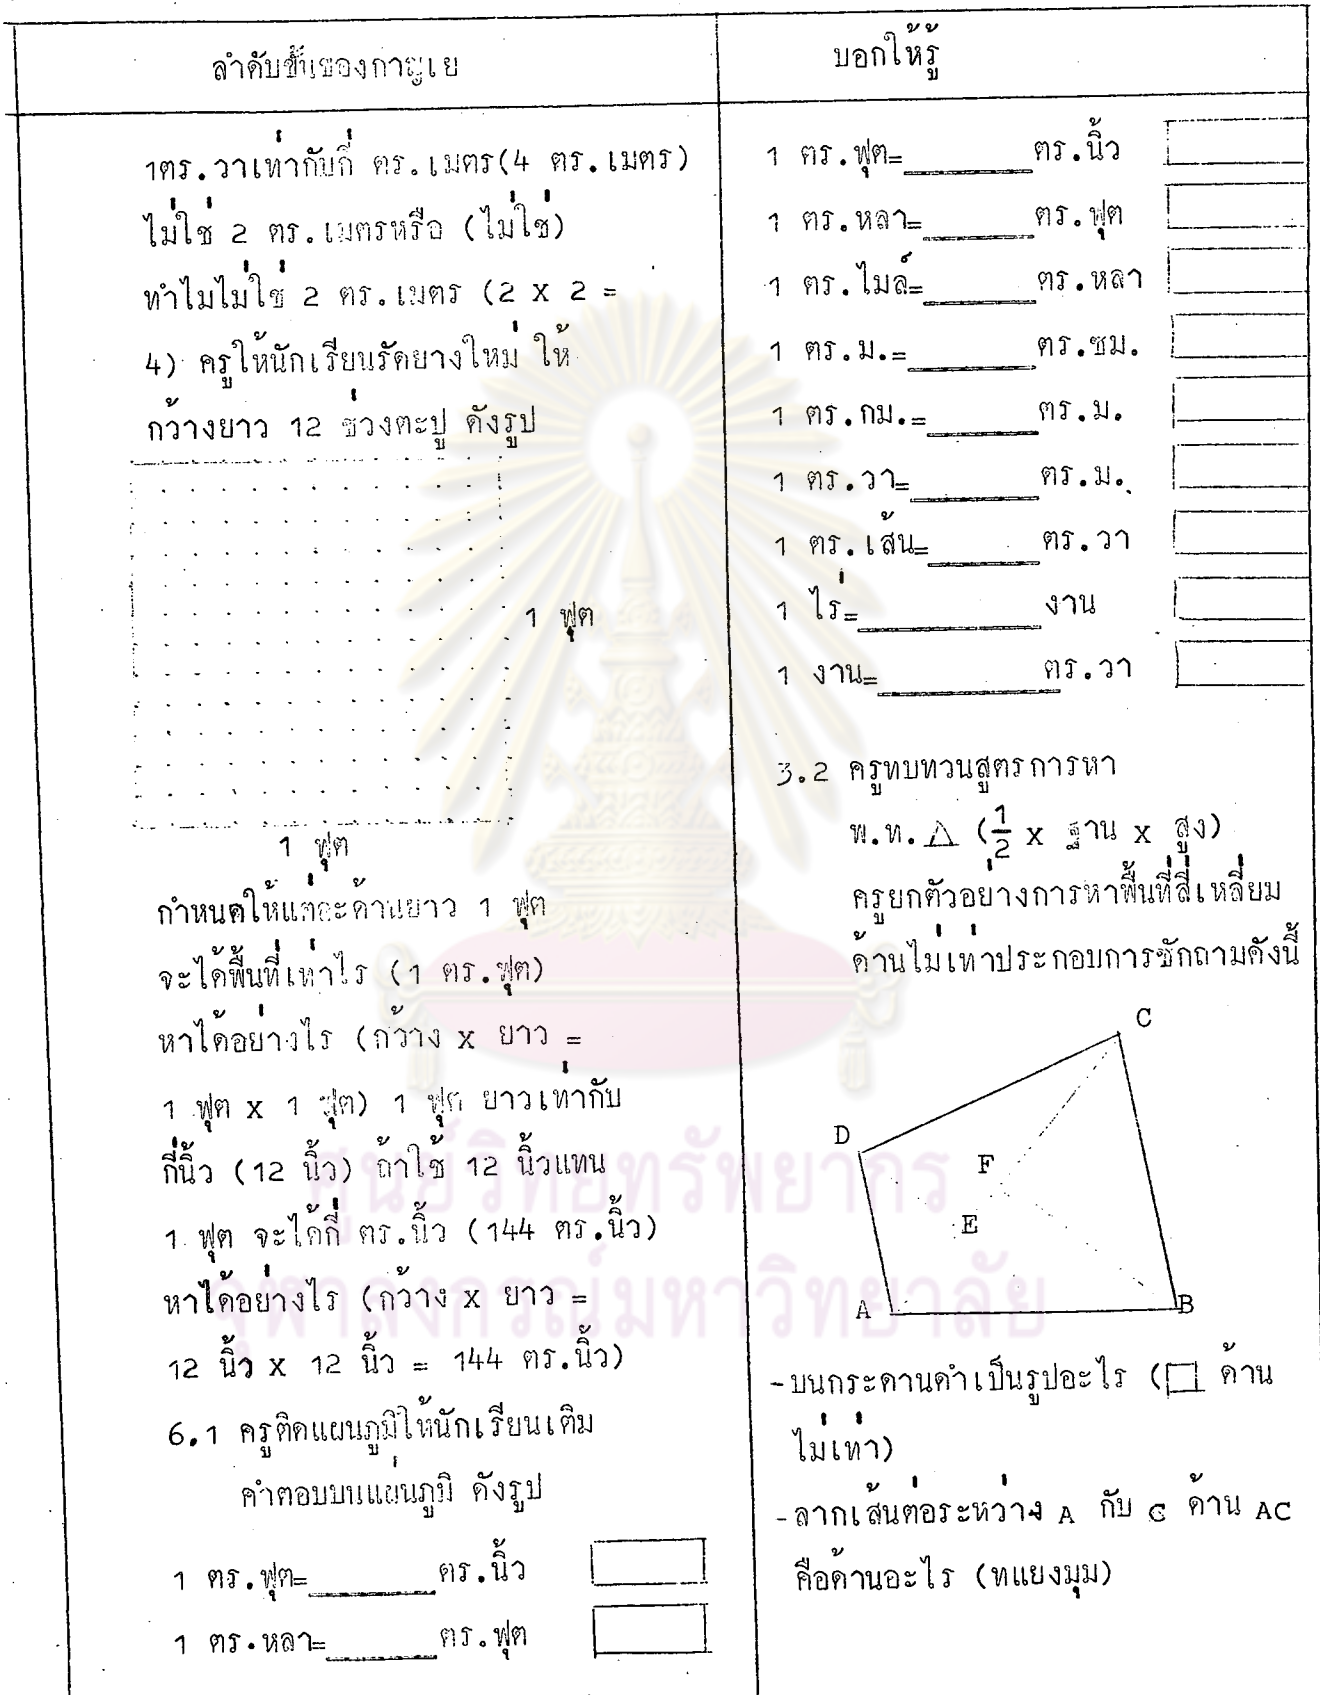 ลำดับขั้นของการเผย
1ตร.วาเท่ากับกี่ ตร.เมตร(4 ตร.เมตร)
ไม่ใช่ 2 ตร.เมตรหรือ (ไม่ใช่)
ทำไมไม่ใช่ 2 ตร.เมตร (2 x 2 =
4) ครูให้นักเรียนรัดยางใหม่ ให้
กว้างยาว 12 ช่วงตะปู ดังรูป
1 ฟุต
1 ฟุต
กำหนดให้แต่ละด้านยาว 1 ฟุต
จะได้พื้นที่เท่าไร (1 ตร.ฟุต)
หาได้อย่างไร (กว้าง x ยาว =
1 ฟุต x 1 ฟุต) 1 ฟุต ยาวเท่ากับ
กี่นิ้ว (12 นิ้ว) ถ้าใช้ 12 นิ้วแทน
1 ฟุต จะได้กี่ ตร.นิ้ว (144 ตร.นิ้ว)
หาได้อย่างไร (กว้าง x ยาว =
12 นิ้ว x 12 นิ้ว = 144 ตร.นิ้ว)
6.1 ครูติดแผนภูมิให้นักเรียนเติม
คำตอบบนแผ่นภูมิ ดังรูป
1 ตร.ฟุต=______ตร.นิ้ว
1 ตร.หลา=______ตร.ฟุต
บอกให้รู้
1 ตร.ฟุต=______ตร.นิ้ว
1 ตร.หลา=______ตร.ฟุต
1 ตร.ไมล์=______ตร.หลา
1 ตร.ม.=______ตร.ซม.
1 ตร.กม.=______ตร.ม.
1 ตร.วา=______ตร.ม.
1 ตร.เส้น=______ตร.วา
1 ไร่=______งาน
1 งาน=______ตร.วา
3.2 ครูทบทวนสูตรการหา
พ.ท.△ (1/2 x ฐาน x สูง)
ครูยกตัวอย่างการหาพื้นที่สี่เหลี่ยม
ด้านไม่เท่าประกอบการซักถามดังนี้
C
D
F
E
A
B
-บนกระดานดำเป็นรูปอะไร (□ ด้าน
ไม่เท่า)
-ลากเส้นต่อระหว่าง A กับ C ด้าน AC
คือด้านอะไร (ทแยงมุม)
ศูนย์วิทยทรัพยากร
จุฬาลงกรณ์มหาวิทยาลัย